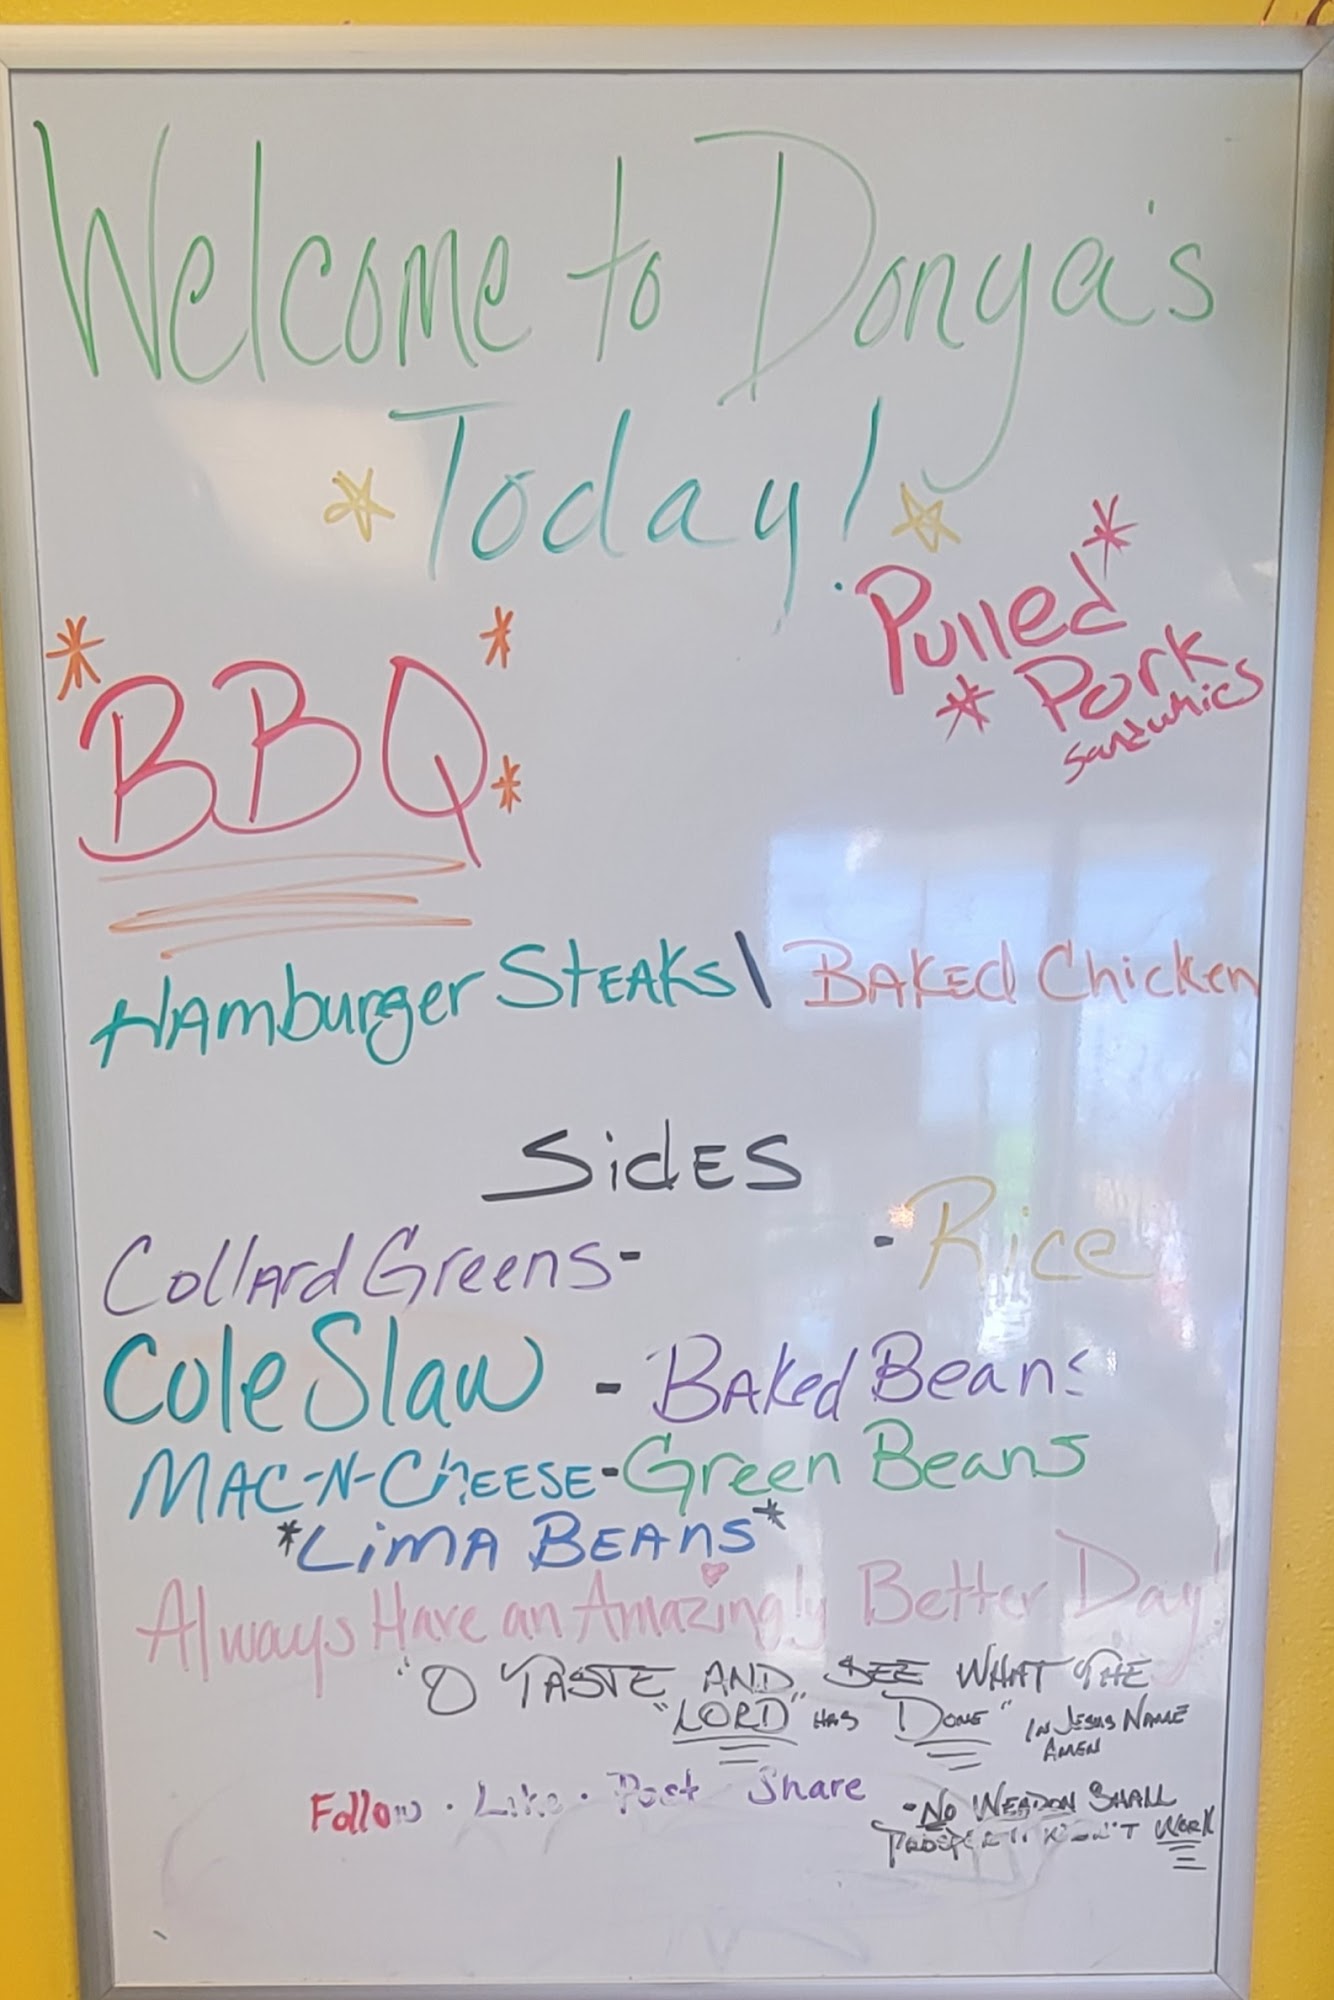 Welcome to Donya's
Today!
Pulled
Pork
Sandwhics
BBQ
Hamburger Steaks \ Baked Chicken
Sides
Collard Greens- - Rice
Cole Slaw - Baked Beans
Mac-N-Cheese-Green Beans
*Lima Beans*
Always Have an Amazingly Better Day!
"O TASTE AND SEE WHAT THE
"LORD" HAS DONE" IN JESUS NAME
AMEN
Follow · Like · Post Share
-NO WEAPON SHALL
PROSPER IT WON'T WORK